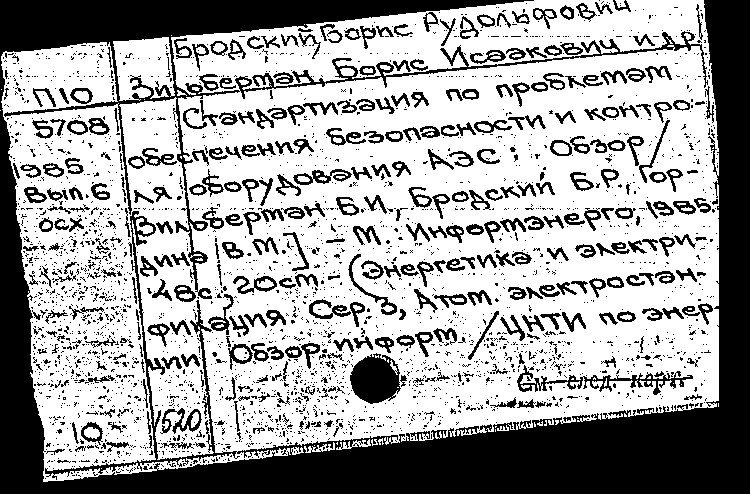 Бродский, Борис Рудольфович
Зильберман, Борис Исаакович и др
П10
5708
1985
Вып.6
осх
Стандартизация по проблемам
обеспечения безопасности и контро-
ля. оборудования АЭС : Обзор /
Зильберман Б.И., Бродский Б.Р., Гор-
дина В.М.]. - М. : Информэнерго, 1985.
48с.; 20см. - (Энергетика и электри-
фикация. Сер. 3, Атом. электростан-
ции : Обзор. информ. / ЦНТИ по энер-
См. след. карт.
10
1520